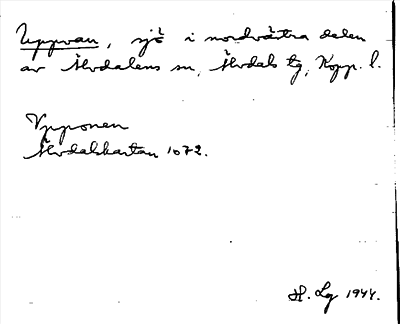 Uppvan, sjö i nordvästra delen
av Älvdalens sn, Älvdals tg, Kopp. l.
Vpponen
Älvdalskartan 1072.
H. Lg 1944.